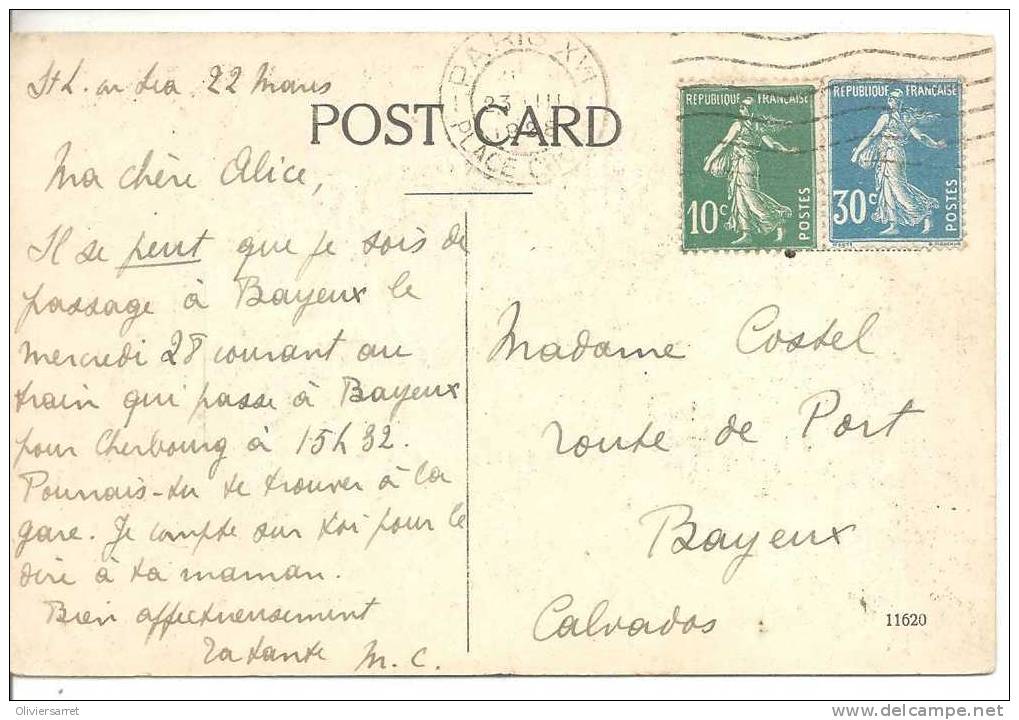 22 Mars
POST CARD
PARIS XVI
23 III
1928
PLACE
REPUBLIQUE FRANÇAISE
10c
POSTES
REPUBLIQUE FRANÇAISE
30c
POSTES
Ma chère Alice,
Il se peut que je sois de
passage à Bayeux le
mercredi 28 courant au
train qui passe à Bayeux
pour Cherbourg à 15h32.
Pourrais-tu te trouver à la
gare. Je compte sur toi pour le
dire à ta maman.
Bien affectueusement
Ta tante M. C.
Madame Costel
route de Port
Bayeux
Calvados
11620
Oliviersarret
www.delcampe.net